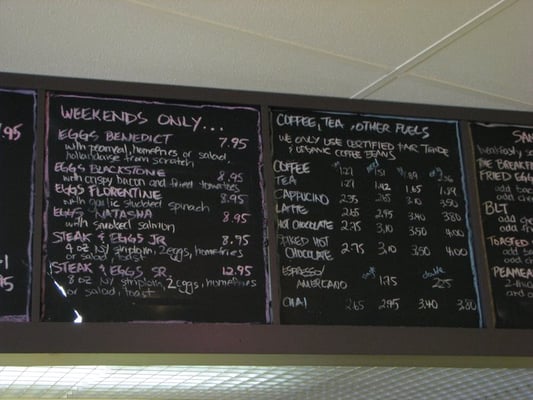 7.95
WEEKENDS ONLY...
EGGS BENEDICT 7.95
with peameal, homefries or salad,
hollandaise from scratch
EGGS BLACKSTONE 8.95
with crispy bacon and fried tomatoes
EGGS FLORENTINE 8.95
with garlic studded spinach
EGGS NATASHA 8.95
with smoked salmon
STEAK & EGGS JR 8.95
4 oz NY striploin, 2 eggs, homefries
or salad, toast
STEAK & EGGS SR 12.95
8 oz NY striploin, 2 eggs, homefries
or salad, toast
COFFEE, TEA, OTHER FUELS
WE ONLY USE CERTIFIED FAIR TRADE
& ORGANIC COFFEE BEANS
COFFEE 1.27 1.51 1.89
TEA 1.27 1.42 1.65 1.89
CAPPUCINO 2.95 3.80
LATTE 2.65 2.95 3.40 3.80
HOT CHOCOLATE 2.75 3.10 3.50 4.00
HOT
CHOCOLATE 2.75 3.10 3.50 4.00
ESPRESSO/
AMERICANO 1.75 double 2.25
CHAI 2.65 2.95 3.40 3.80
THE BREAKF
FRIED EGG
BLT
TOASTED
PEAMEA